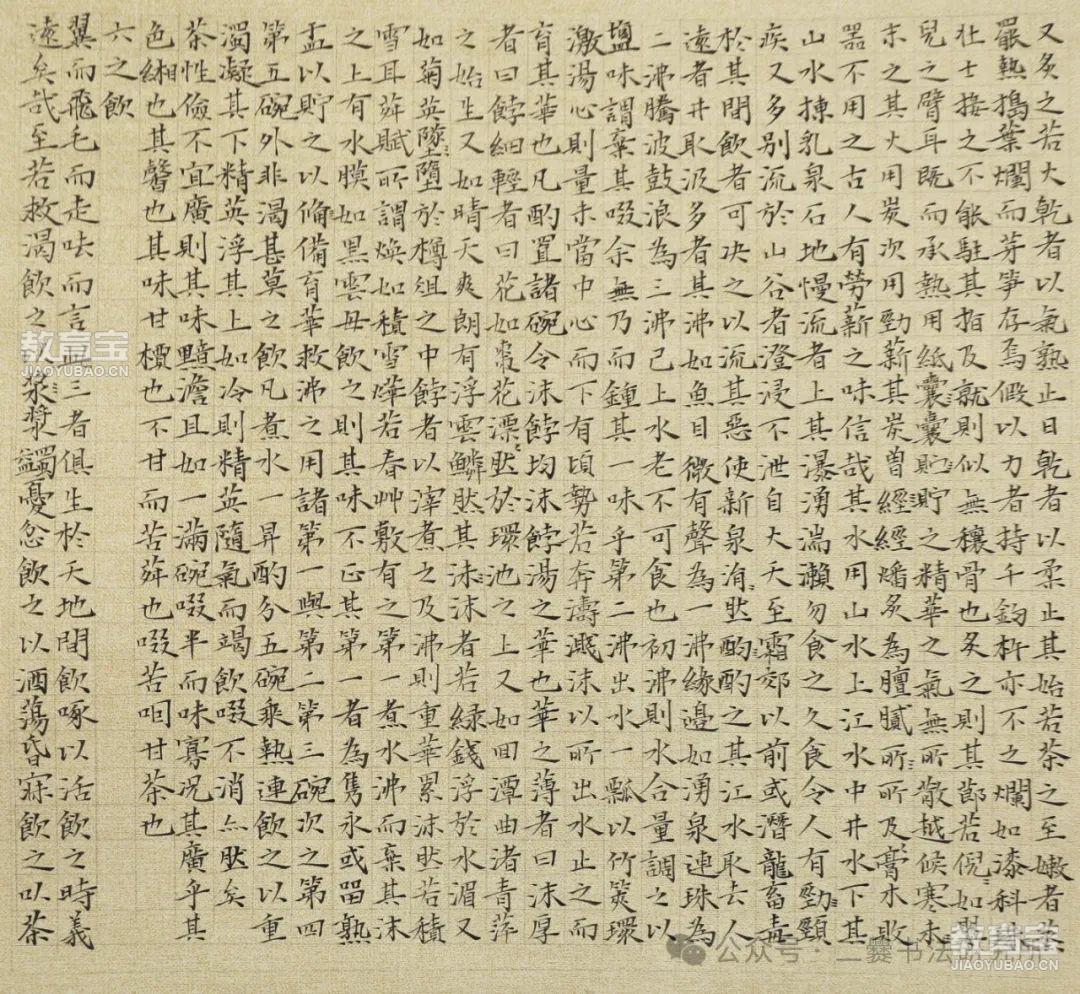 又炙之若火乾者以氣熟止日乾者以柔止其始若茶之至嫩者茶
罷熱搗葉爛而芽筍存焉假以力者持千鈞杵亦不之爛如漆科
壯士接之不能駐其指及就則似無穰骨也炙之則其節若倪如嬰
兒之臂耳既而承熱用紙囊囊貯貯之精華之氣無所散越候寒未
末之其火用炭次用勁薪其炭曾經經燔炙為膻膩所所及膏木敗
器不用之古人有勞薪之味信哉其水用山水上江水中井水下其
山水揀乳泉石地慢流者上其瀑湧湍瀨勿食之久食令人有勁頸
疾又多別流於山谷者澄浸不泄自火天至霜郊以前或潛龍畜毒
於其間飲者可決之以流其惡使新泉涓然酌酌之其江水取去人
遠者井取汲多者其沸如魚目微有聲為一沸緣邊如湧泉連珠為
二沸騰波鼓浪為三沸已上水老不可食也初沸則水合量調之以
鹽味謂棄其啜余無乃而鍾其一味乎第二沸出水一瓢以竹筴環
激湯心則量末當中心而下有頃勢若奔濤濺沫以所出水止之而
育其華也凡酌置諸碗令沫餑均沫餑湯之華也華之薄者曰沫厚
者曰餑細輕者曰花如棗花漂然於環池之上又如回潭曲渚青萍
之始生又如晴天爽朗有浮雲鱗然其沫沫者若綠錢浮於水湄又
如菊英墜墮於樽俎之中餑者以滓煮之及沸則重華累沫然若積
雪耳荈賦所謂煥如積雪燁若春艸敷有之第一煮水沸而棄其沫
之上有水膜如黑雲母飲之則其味不正其第一者為雋永或留熟
盂以貯之以俻備育華救沸之用諸第一與第二第三碗次之第四
第五碗外非渴甚莫之飲凡煮水一昇酌分五碗乘熱連飲之以重
濁凝其下精英浮其上如冷則精英隨氣而竭飲啜不消亦然矣
茶性儉不宜廣則其味黯澹且如一滿碗啜半而味寡況其廣乎其
色緗也其馨也其味甘檟也不甘而苦荈也啜苦咽甘茶也
六之飲
翼而飛毛而走呿而言此三者俱生於天地間飲啄以活飲之時義
遠矣哉至若救渴飲之以漿漿蠲益憂忿飲之以酒蕩昏寐飲之以茶
教育宝
JIAOYUBAO.CN
公众号·二爨书法
教育宝
JIAOYUBAO.CN